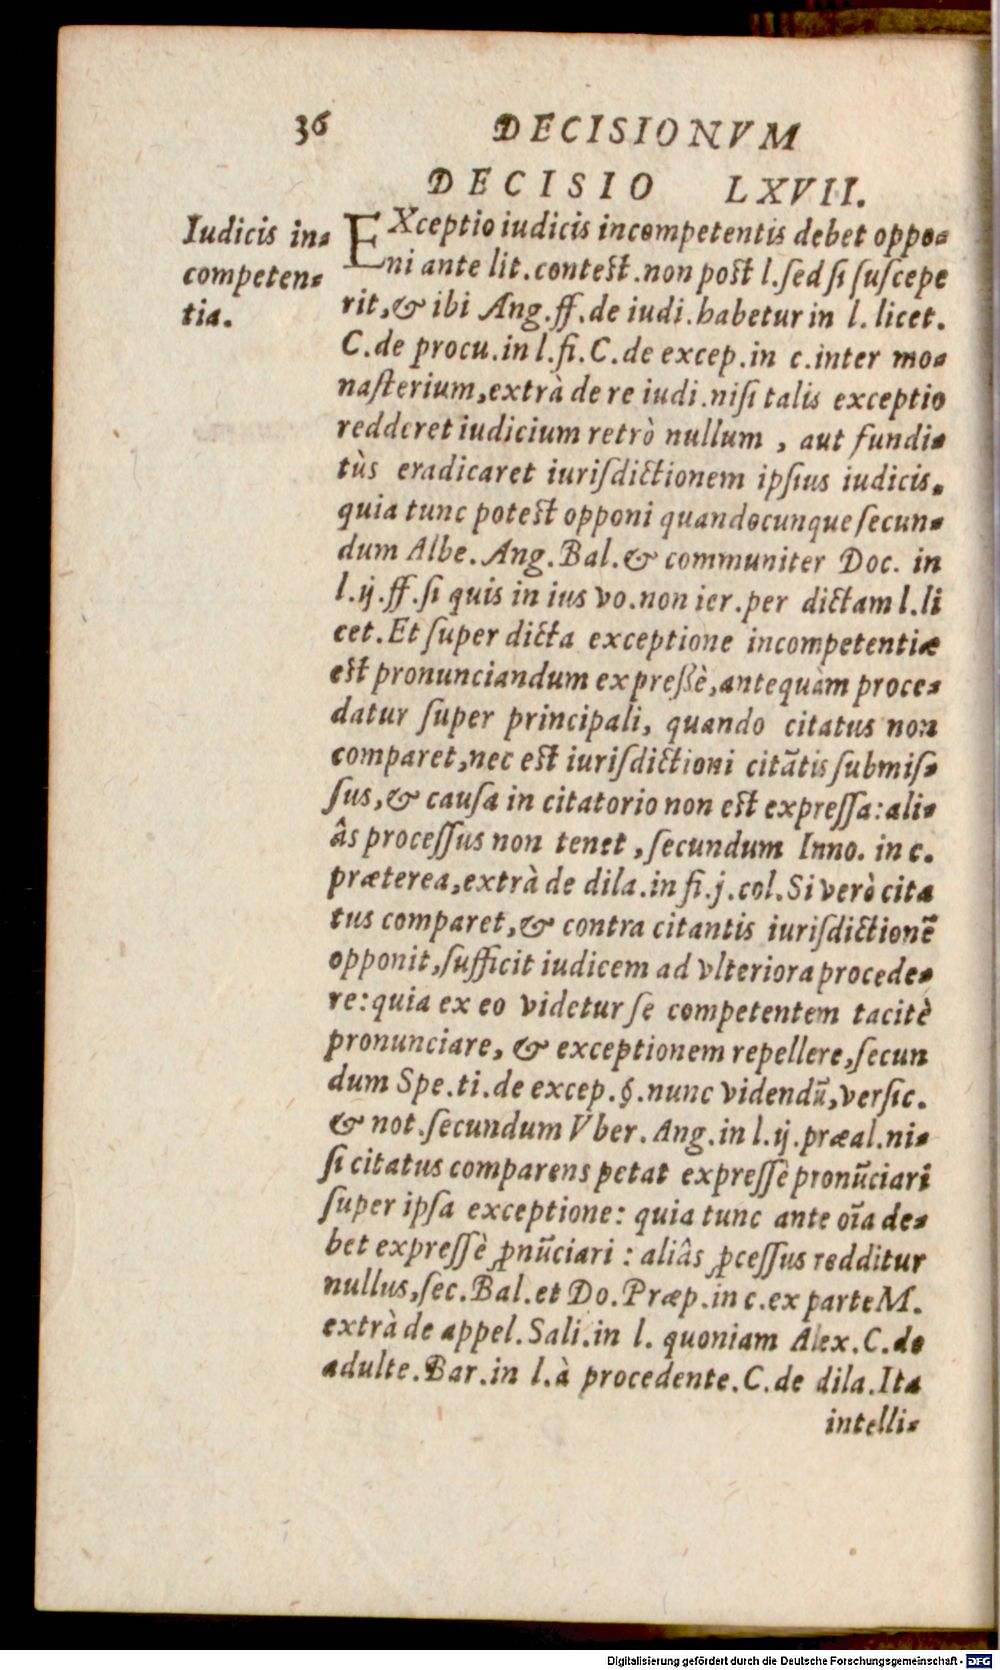 36 DECISIONVM
DECISIO LXVII.
Iudicis in-
competen-
tia.
EXceptio iudicis incompetentis debet oppo-
ni ante lit. contest. non post l. sed si suscepe
rit, & ibi Ang. ff. de iudi. habetur in l. licet.
C. de procu. in l. fi. C. de excep. in c. inter mo-
nasterium, extrà de re iudi. nisi talis exceptio
redderet iudicium retrò nullum, aut fundi-
tùs eradicaret iurisdictionem ipsius iudicis.
quia tunc potest opponi quandocunque secun-
dum Albe. Ang. Bal. & communiter Doc. in
l. ij. ff. si quis in ius vo. non ier. per dictam l. li
cet. Et super dicta exceptione incompetentiæ
est pronunciandum expreßè, antequàm proce-
datur super principali, quando citatus non
comparet, nec est iurisdictioni citātis submis-
sus, & causa in citatorio non est expressa: ali-
âs processus non tenet, secundum Inno. in c.
præterea, extrà de dila. in fi. j. col. Si verò cita
tus comparet, & contra citantis iurisdictionē
opponit, sufficit iudicem ad vlteriora procede-
re: quia ex eo videtur se competentem tacitè
pronunciare, & exceptionem repellere, secun
dum Spe. ti. de excep. §. nunc videndū, versic.
& not. secundum Vber. Ang. in l. ij. præal. ni-
si citatus comparens petat expressè pronūciari
super ipsa exceptione: quia tunc ante oīa de-
bet expressè ꝓnūciari: aliâs ꝓcessus redditur
nullus, sec. Bal. et Do. Præp. in c. ex parte M.
extrà de appel. Sali. in l. quoniam Alex. C. de
adulte. Bar. in l. à procedente. C. de dila. Ita
intelli-
Digitalisierung gefördert durch die Deutsche Forschungsgemeinschaft - DFG